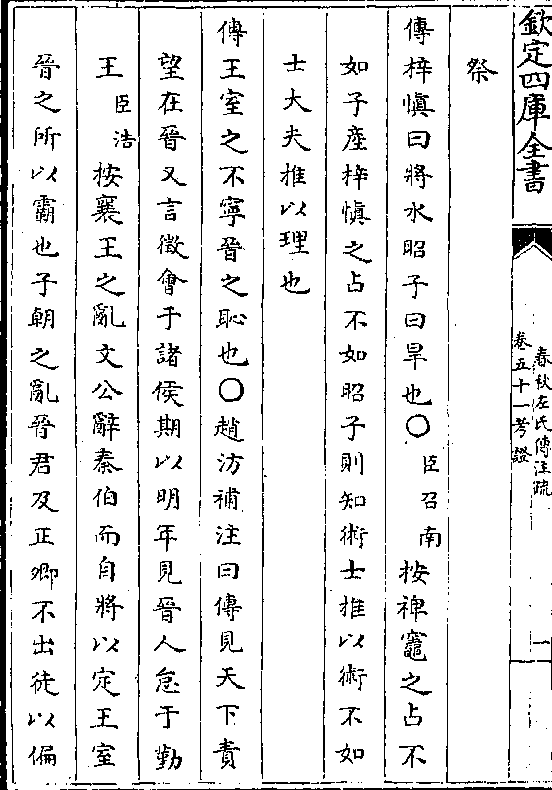 欽定四庫全書
春秋左氏傳注疏
卷五十一考證
一
祭
傳梓慎曰將水昭子曰旱也○臣召南按裨竈之占不
如子産梓慎之占不如昭子則知術士推以術不如
士大夫推以理也
傳王室之不寧晉之恥也○趙汸補注曰傳見天下責
望在晉又言徵會于諸侯期以明年見晉人怠于勤
王臣浩按襄王之亂文公辭秦伯而自將以定王室
晉之所以霸也子朝之亂晉君及正卿不出徒以偏